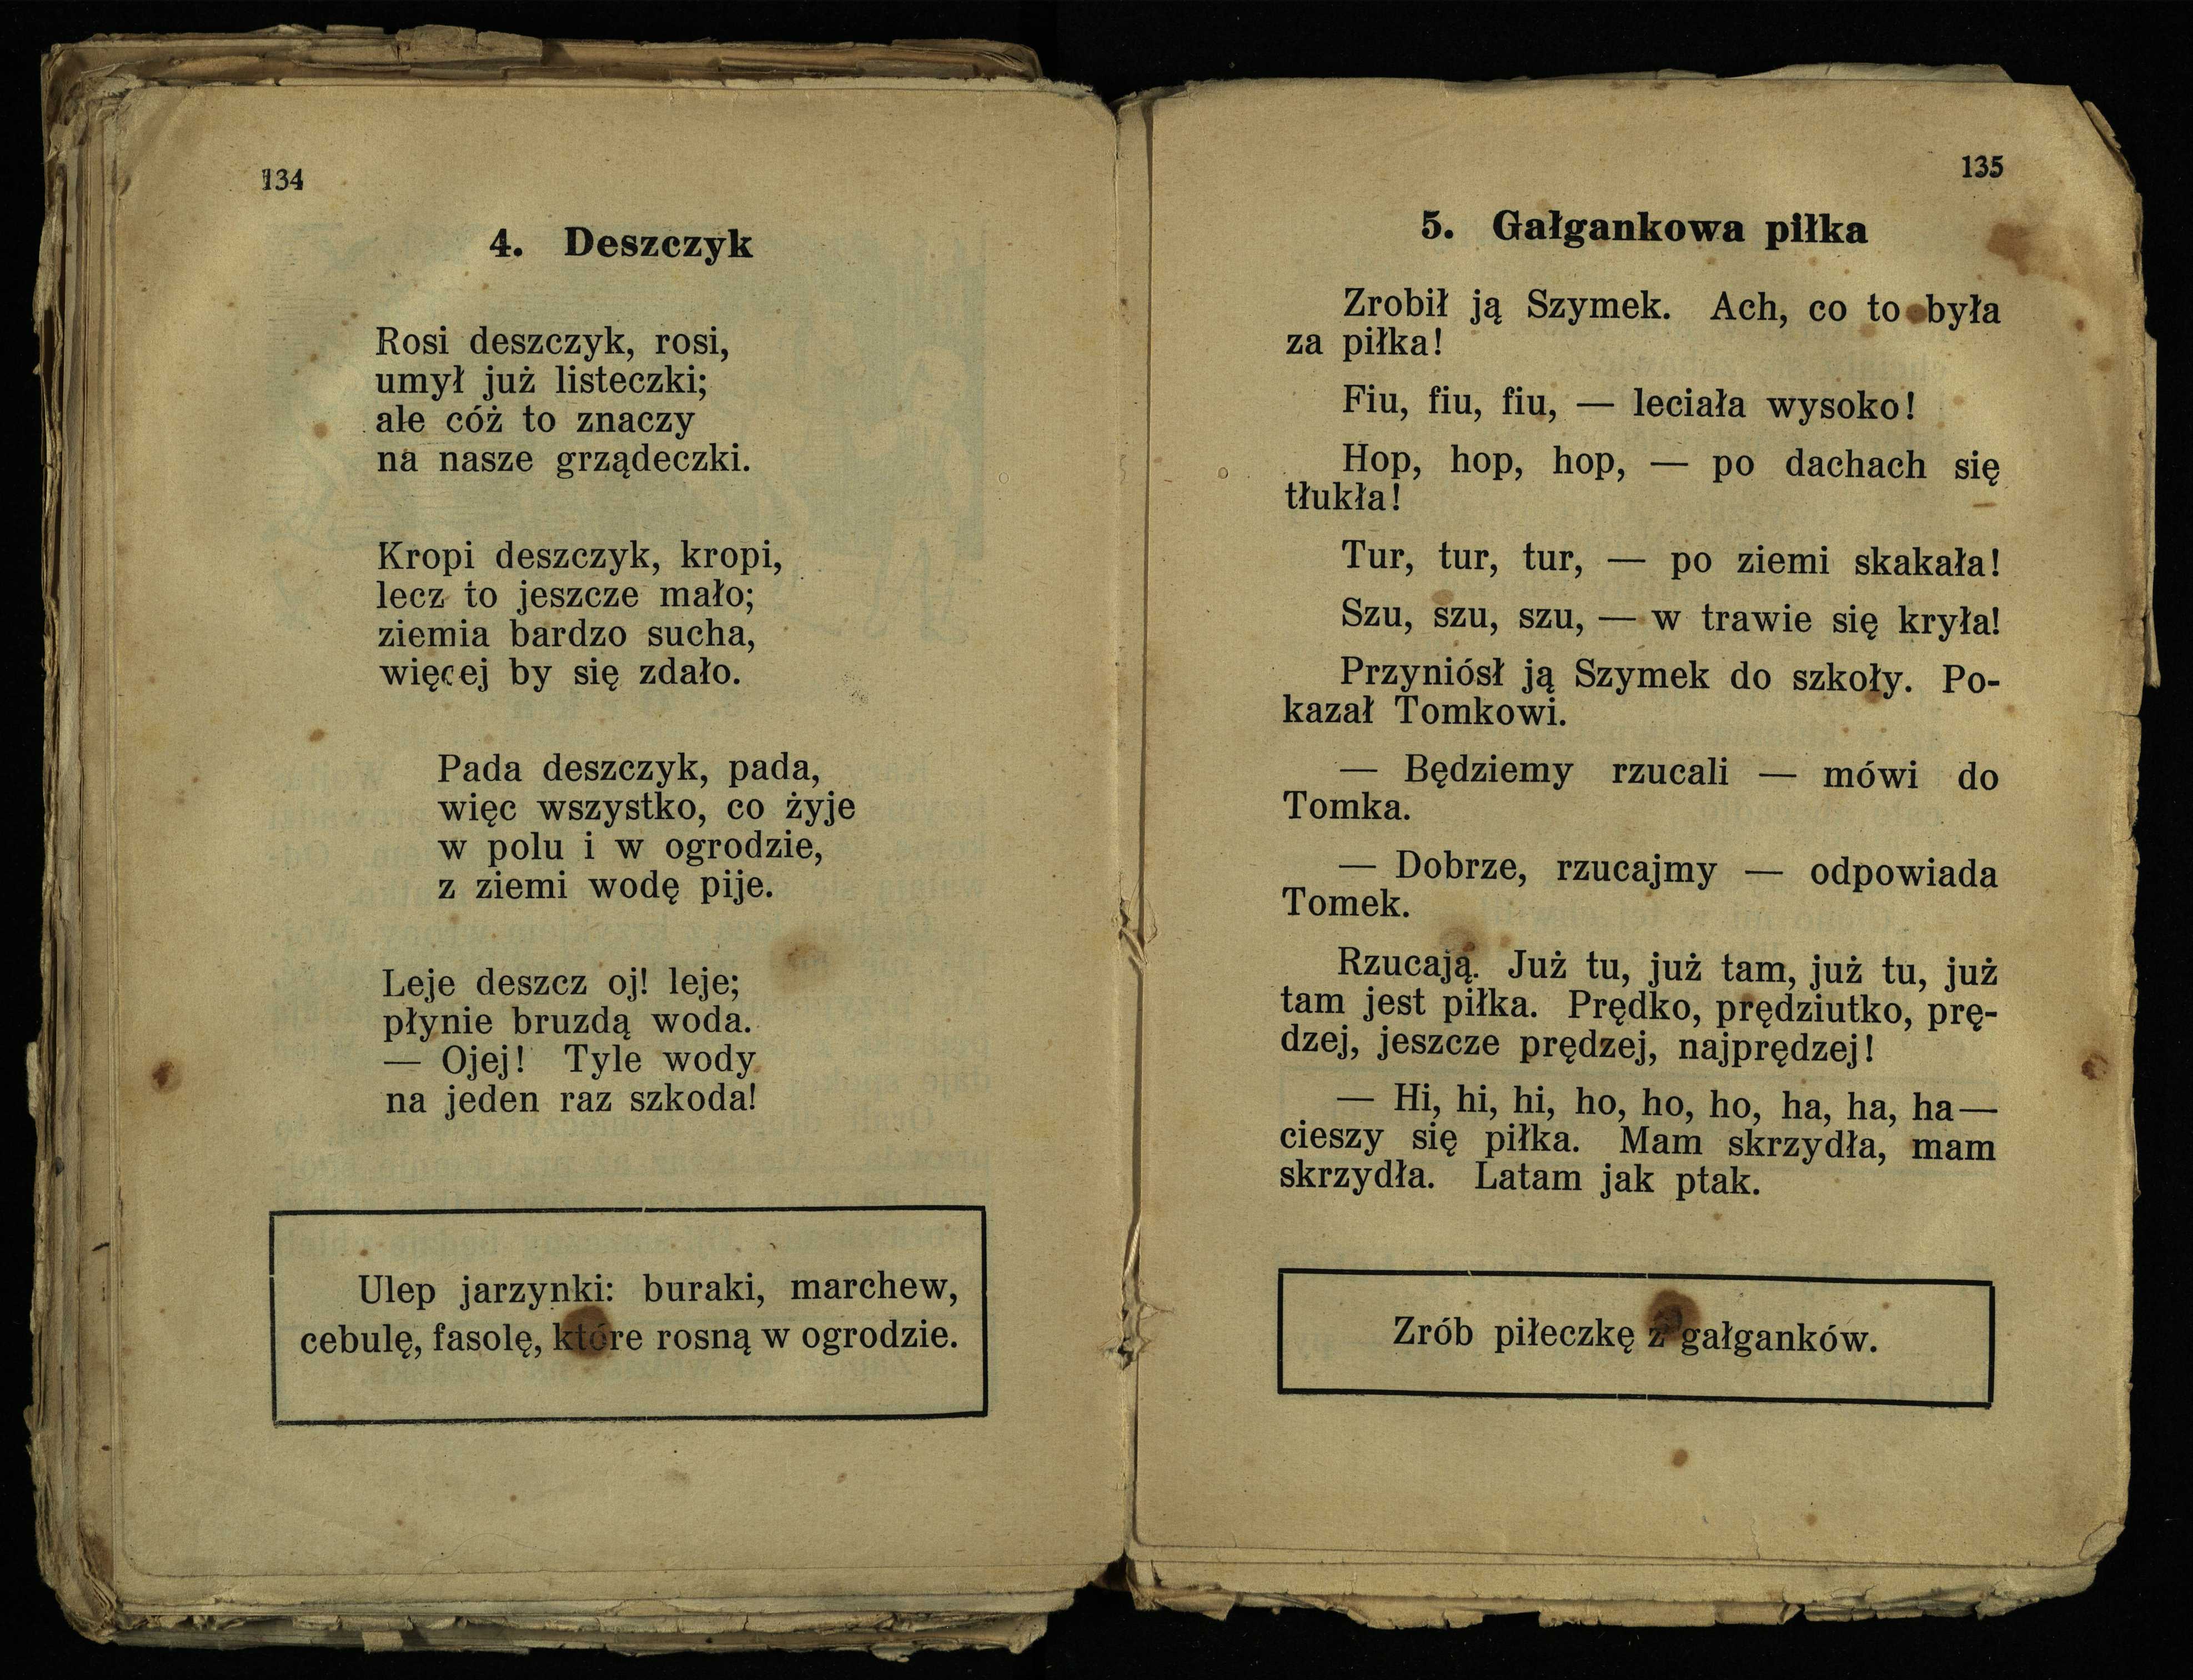 134
4. Deszczyk
Rosi deszczyk, rosi,
umył już listeczki;
ale cóż to znaczy
na nasze grządeczki.
Kropi deszczyk, kropi,
lecz to jeszcze mało;
ziemia bardzo sucha,
więcej by się zdało.
Pada deszczyk, pada,
więc wszystko, co żyje
w polu i w ogrodzie,
z ziemi wodę pije.
Leje deszcz oj! leje;
płynie bruzdą woda.
— Ojej! Tyle wody
na jeden raz szkoda!
Ulep jarzynki: buraki, marchew,
cebulę, fasolę, które rosną w ogrodzie.
135
5. Gałgankowa piłka
Zrobił ją Szymek. Ach, co to była
za piłka!
Fiu, fiu, fiu, — leciała wysoko!
Hop, hop, hop, — po dachach się
tłukła!
Tur, tur, tur, — po ziemi skakała!
Szu, szu, szu, — w trawie się kryła!
Przyniósł ją Szymek do szkoły. Po-
kazał Tomkowi.
— Będziemy rzucali — mówi do
Tomka.
— Dobrze, rzucajmy — odpowiada
Tomek.
Rzucają. Już tu, już tam, już tu, już
tam jest piłka. Prędko, prędziutko, prę-
dzej, jeszcze prędzej, najprędzej!
— Hi, hi, hi, ho, ho, ho, ha, ha, ha—
cieszy się piłka. Mam skrzydła, mam
skrzydła. Latam jak ptak.
Zrób piłeczkę z gałganków.